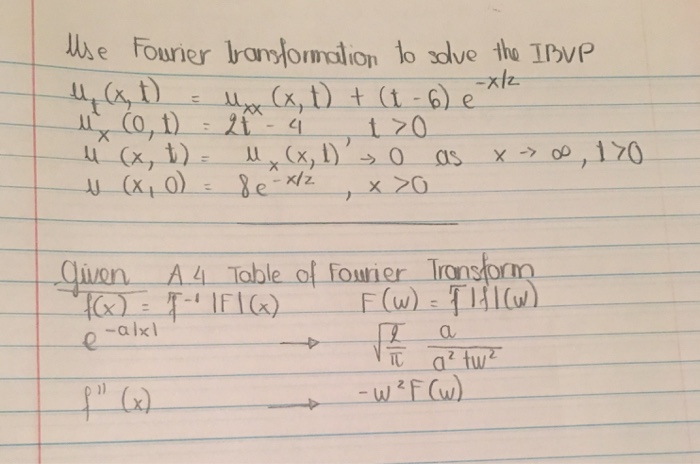 Use Fourier Transformation to solve the IBVP
u_t (x, t) = u_xx (x, t) + (t - 6) e^{-x/2}
u_x (0, t) = 2t - 4 , t > 0
u (x, t) = u_x (x, t) → 0 as x → ∞, t > 0
u (x, 0) = 8e^{-x/2} , x > 0
Given A.4 Table of Fourier Transform
f(x) = F^{-1} |F| (x) F(w) = F|f|(w)
e^{-a|x|} → √(2/π) a/(a² + w²)
f'' (x) → -w² F(w)